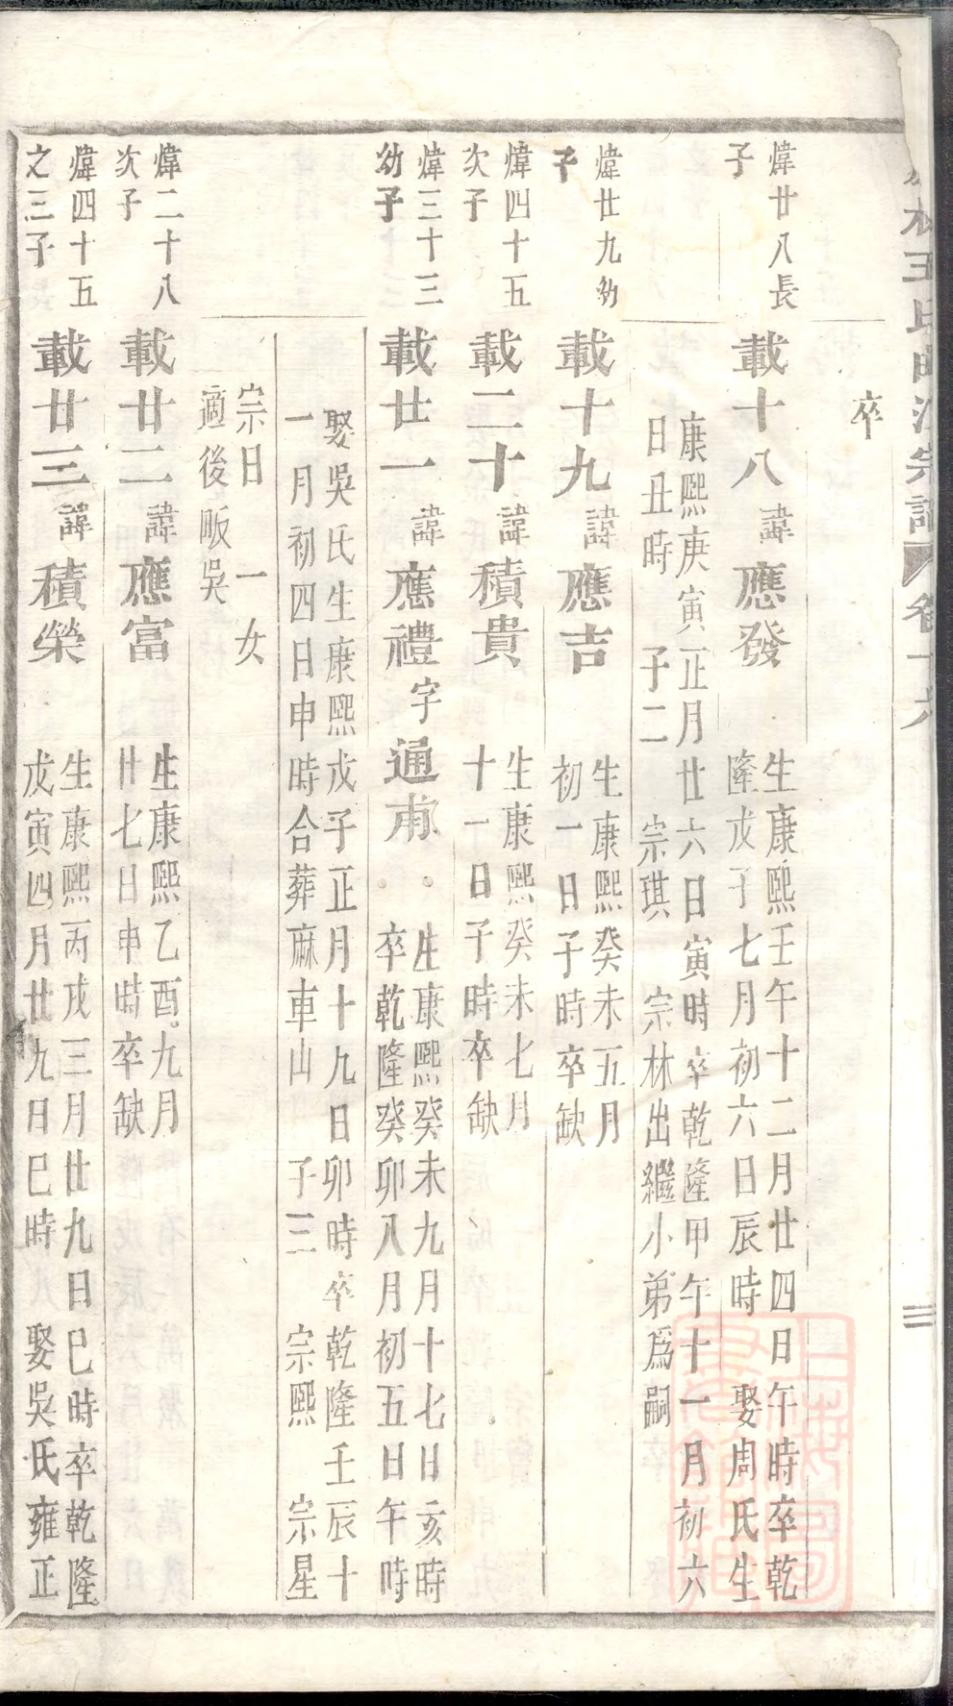 卒
煒廿八長
子
載十八諱應發
生康熙壬午十二月廿四日午時卒乾
隆戊子七月初六日辰時 娶周氏生
康熙庚寅正月廿六日寅時卒乾隆甲午十一月初六
日丑時 子二 宗琪 宗林出繼小弟爲嗣
煒廿九幼
子
載十九諱應吉
生康熙癸未五月
初一日子時卒缺
煒四十五
次子
載二十諱積貴
生康熙癸未七月
十一日子時卒缺
煒三十三
幼子
載廿一諱應禮字通甫
生康熙癸未九月十七日亥時
卒乾隆癸卯八月初五日午時
娶吳氏生康熙戊子正月十九日卯時卒乾隆壬辰十
一月初四日申時合葬麻車山 子三 宗熙 宗星
宗日 一女
適後畈吳
煒二十八
次子
載廿二諱應富
生康熙乙酉九月
廿七日申時卒缺
煒四十五
之三子
載廿三諱積榮
生康熙丙戌三月廿九日巳時卒乾隆
戊寅四月廿九日巳時 娶吳氏雍正